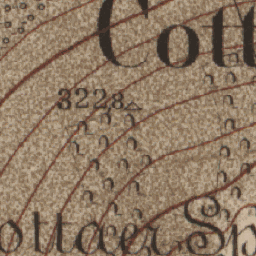 Cott
3228
ottaer Sp